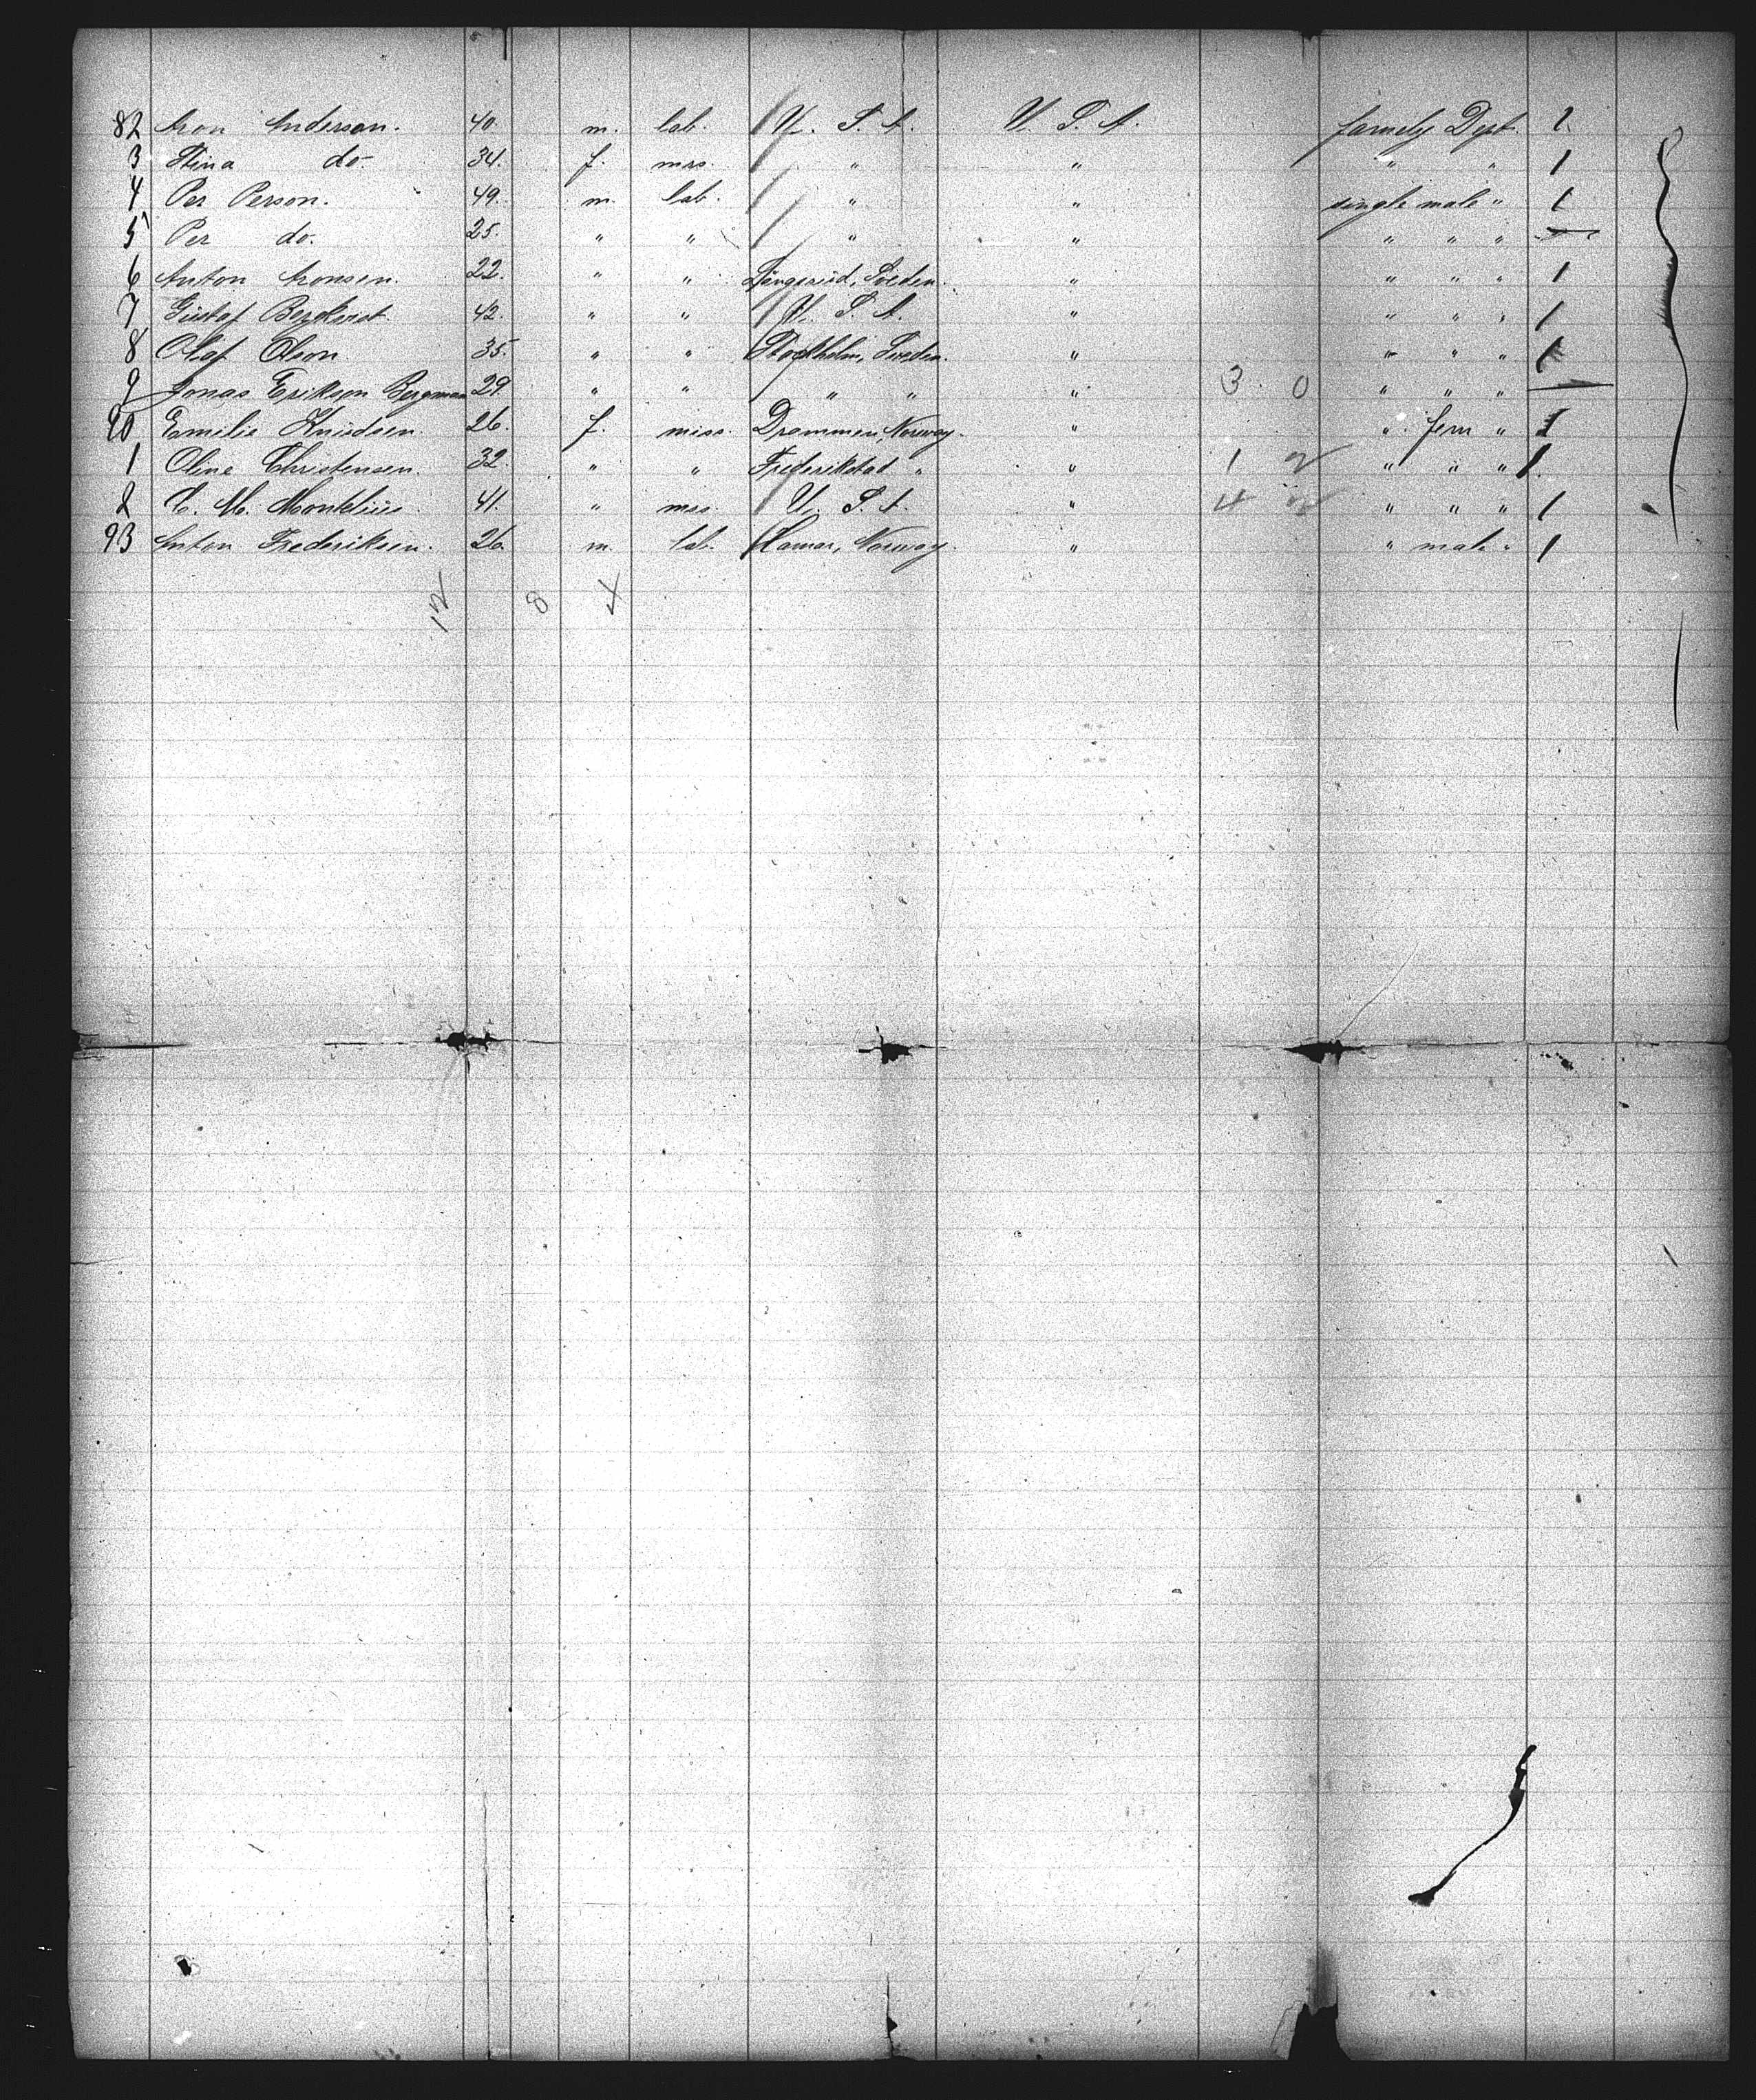 82 Aron Anderson. 40. m. lab. U. S. A. U. S. A. famely Dept. 1
3 Stina do. 34. f. mrs. " " " " 1
4 Per Person. 49. m. lab. " " single male " 1
5 Per do. 25. " " " " " " "
6 Anton Aronsen. 22. " " Sweden. " " " " 1
7 Gustaf Bergkvist. 42. " " U. S. A. " " " " 1
8 Olof Olson 35. " " Stockholm, Sweden. " " " " 1
9 Jonas Erikson Bergman 29. " " " " " 3 0 " " "
90 Emilie Knudsen. 26. f. miss. Drammen, Norway. " " fem " 1
1 Oline Christensen. 32. " " Frederikstad " " 1 2 " " " 1
2 C. M. Montelius. 41. " mrs. U. S. A. " 4 2 " " " 1
93 Anton Frederiksen. 26. m. lab. Hamar, Norway. " " male " 1
12 8 4